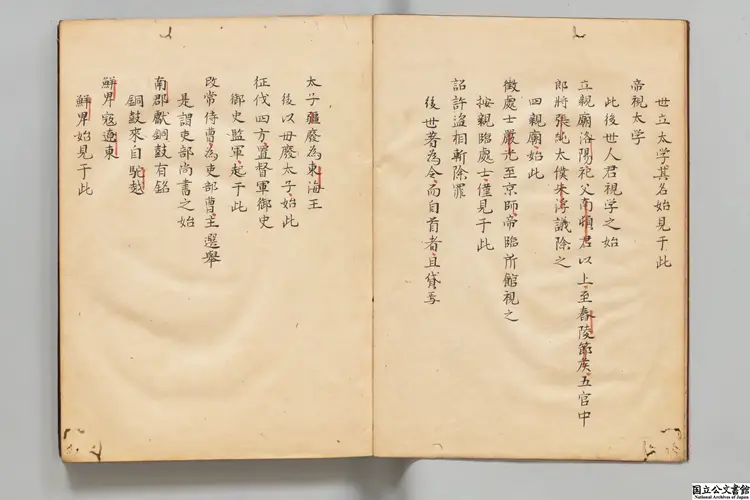 世立太学其名始見于此
帝視太学
此後世人君視学之始
立親廟洛陽祀父南頓君以上至舂陵節侯五官中
郎將張純太僕朱浮議除之
四親廟始此
徵處士嚴光至京師帝臨所館視之
按親臨處士僅見于此
詔許盗相斬除罪
後世著為令而自首者且貸等
太子彊廢為東海王
後以毋廢太子始此
征伐四方置督軍御史
御史監軍起于此
改常侍曹為吏部曹主選舉
是謂吏部尚書之始
南郡獻銅鼓有銘
銅鼓來自駱越
鮮卑寇遼東
鮮卑始見于此
国立公文書館
National Archives of Japan